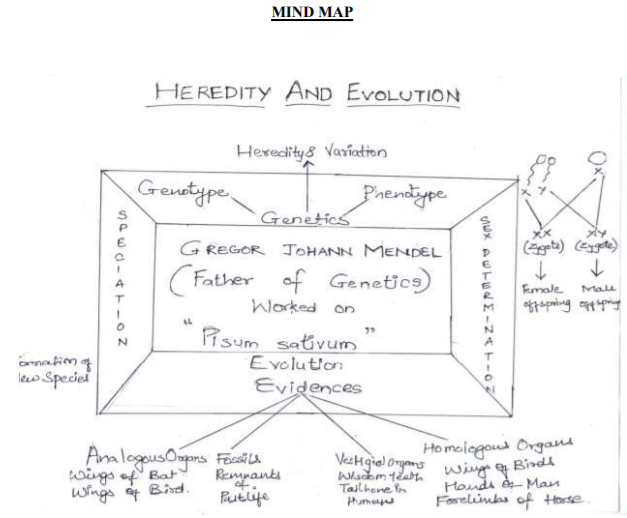 MIND MAP
HEREDITY AND EVOLUTION
Heredity & Variation
Genotype
Phenotype
Genetics
SPECIATION
GREGOR JOHANN MENDEL
(Father of Genetics)
Worked on
"Pisum sativum"
SEX DETERMINATION
X Y
X
XX
XY
(Zygote)
(Zygote)
Female
offspring
Male
offspring
ormation of
New Species
Evolution
Evidences
Analogous Organs
Wings of Bat
Wings of Bird.
Fossils
Remnants
of
Past life
Vestigial Organs
Wisdom Teeth
Tailbone in
Humans
Homologous Organs
Wings of Birds
Hands of Man
Forelimbs of Horse.